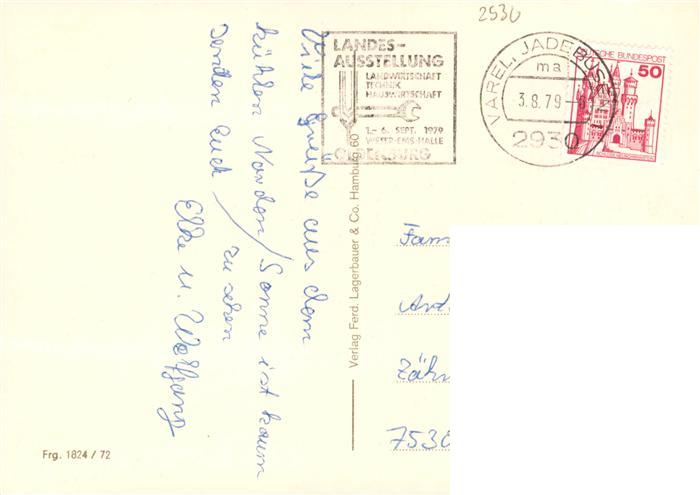 2930
LANDES-
AUSSTELLUNG
LANDWIRTSCHAFT
TECHNIK
HAUSWIRTSCHAFT
1.- 6. SEPT. 1979
WESER-EMS-HALLE
OLDENBURG
VAREL, JADEBUSEN
ma
3.8.79
2930
DEUTSCHE BUNDESPOST
50
Viele Grüße aus dem
kühlen Norden / Sonne ist kaum
zu sehen
senden Euch /
Elke u. Wolfgang
Verlag Ferd. Lagerbauer & Co. Hamburg 60
Fam
And
Zäh
7530
Frg. 1824 / 72